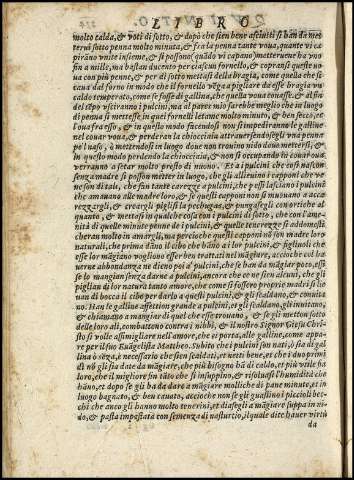 LIBRO
molto calda, & voti di sotto, & dopò che sien bene asciutti si hàn da met
terui sotto penna molto minuta, & fra la penna tante voua, quante vi ca
pirano vnite insieme, & si possono (quãdo vi capano) metteruene ha uoua
fin a mille, ma bastan ducento per ciascun fornello, & copransi queste uo
ua con più penne, & per di sotto mettasi della bragia, come quella che si
caua dal forno in modo che il fornello vẽga a pigliare da esse bragia vn
caldo temperato, come se fosse di gallina, che quella voua couasse, & al fin
dei tẽpo visciranno i pulcini, ma al parer mio sarebbe meglio che in luogo
di penna si mettesse in quei fornelli letame molto minuto, & ben secco, et
l'oua fra esso, & in questo modo facendosi non s'impediranno le galline
nel couar voua, & perderan la chiocciata attrauersandosegli vna penna
pe'l naso, ò mettendosi in luogo doue non trouino nido doue mettersi, &
in questo modo perdendo la chiocciata, & non si occupando in couar oua
verranno a fetar molto presto di nuouo. Et a i pulcini che così nascon
senza madre si posson metter in luogo, che gli alleuino i capponi che ve
ne son di tali, che fan tante carezze a pulcini, che essi lasciano i pulcini
che amauano alle madre loro, & se questi capponi non si muouono a ac
carezzargli, & tengli pigliisi la & pungasegli con ortiche al
quanto, & mettasi in qualche cosa con i pulcini di sotto, che con l'ame
nità di quelle minute penne de i pulcini, & quelle tenerezze si addomesti
cheran molto in amargli, ma perciocche questi capponi nõ son madre loro
naturali, che prima dãno il cibo che hãno a i lor pulcini, & figliuoli che
esse lor mãgiano vogliono esser ben trattati nel mãgiare, accioche col ha
uerne abbondanza ne dieno poi a' pulcini, che se han da mãgiar poco, essi
se lo mangian senza darne a pulcini, ancora che ce ne sien alcuni, che gli
piglian di lor natura tanto amore, che come si fossero proprie madri si lie
uan di bocca il cibo per darlo a questi pulcini, & gli scaldano, & conuita
no. Han le galline affettion grande a pulcini, et gli scaldano, gli inuitano,
& chiamano a mangiar di quel che esse trouano, & se gli metton sotto
delle loro ali, combattono contra i nibbi, & il nostro Signor Giesu Chri=
sto si volse assimigliare nell'amore, che ci porta, alle galline, come appa-
re per il suo Euãgelista Mattheo. Subito che i pulcini son nati, ò sia di gal
lina ò nõ, è necessario che sien scaldati, et netti bene, et che i duo primi
dì nõ gli sia dato da mãgiare, che più bisogno hã di caldo, et più vtile fia
loro, che il migliore fin tãto che si insuppino, & risoluasi l'humidità che
hãno, et dopo se gli ha da dare a mãgiare molliche di pane minuto, et in
luogo bagnato, & ben cauato, accioche non se gli guastino i piccoli bec-
chi che anco gli hanno molto tenerini, et diasegli a mãgiare suppa in vi-
no, & pasta impastata con semenza di nasturcio, il quale dice hauer virtù
da